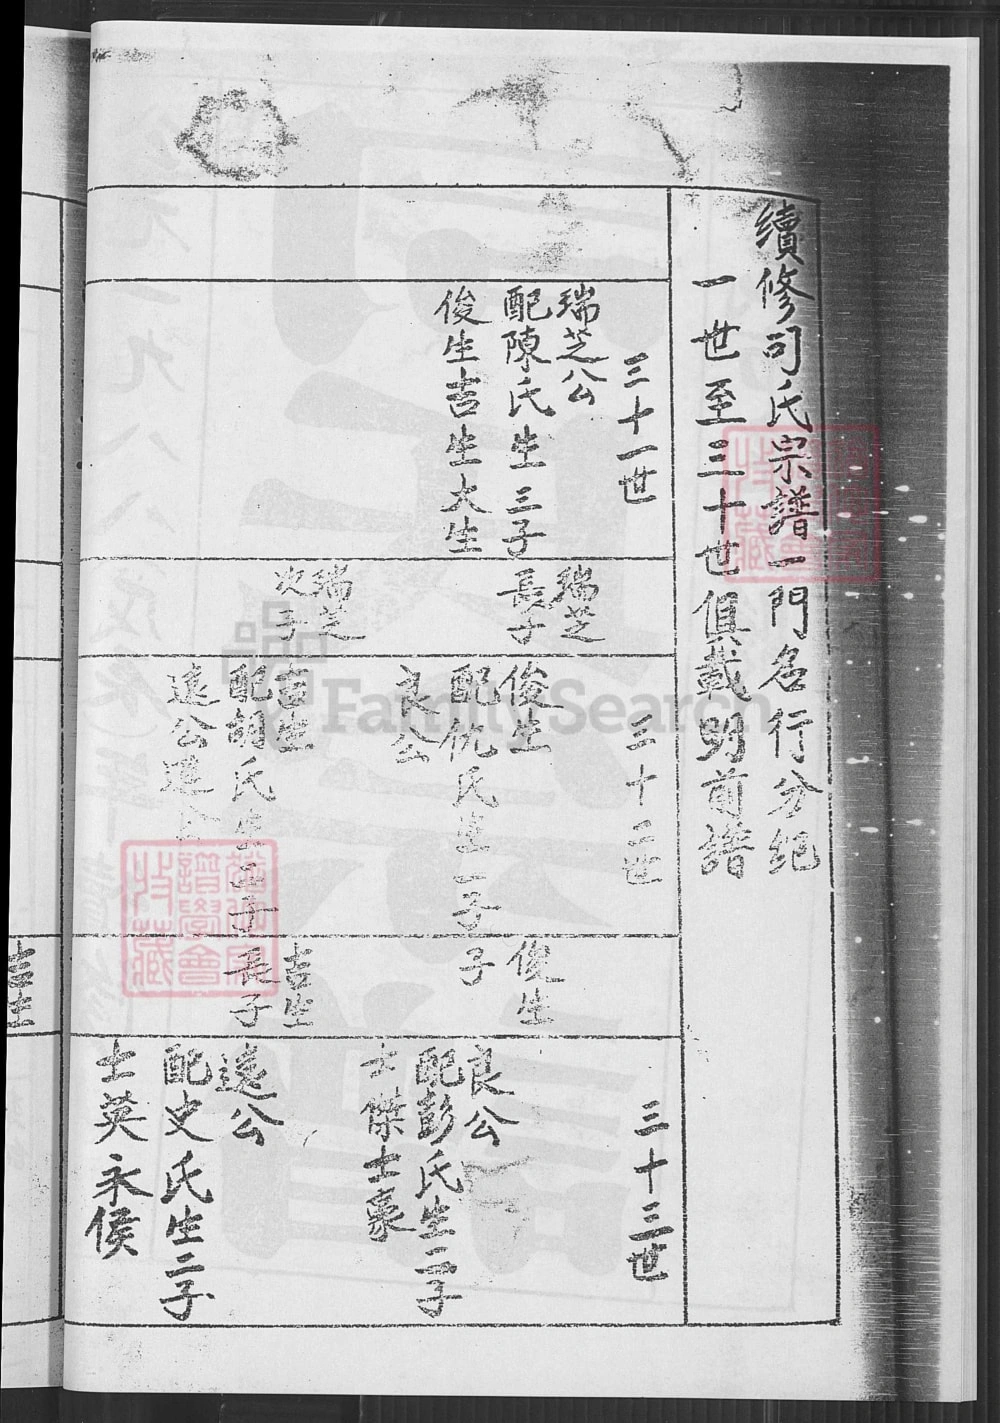 續修司氏宗譜一門名行分纪
一世至三十世俱載明前譜
三十一世
瑞芝公
配陳氏生三子
俊生吉生大生
三十二世
瑞芝
長子
俊生
配仇氏生一子
良公
瑞芝
次子
吉生
配胡氏生二子
遠公
三十三世
俊生
子
良公
配彭氏生二子
士傑士豪
吉生
長子
遠公
配史氏生二子
士英永侯
吉生
FamilySearch